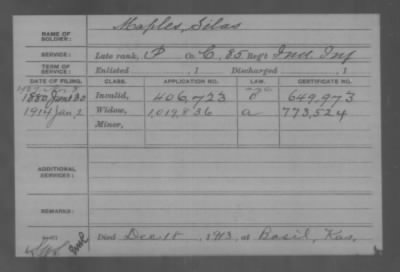 NAME OF SOLDIER: Maples, Silas
SERVICE: Late rank, P Co. C, 85 Reg't Ind Inf
TERM OF SERVICE: Enlisted , 1 Discharged , 1
DATE OF FILING. CLASS. APPLICATION NO. LAW. CERTIFICATE NO.
1880 June 30 Invalid, 406,723 649,973
1914 Jan, 2 Widow, 1,019,836 a 773,524
Minor,
ADDITIONAL SERVICES:
REMARKS:
Died Dec 18, 1913, at Basil, Kas,